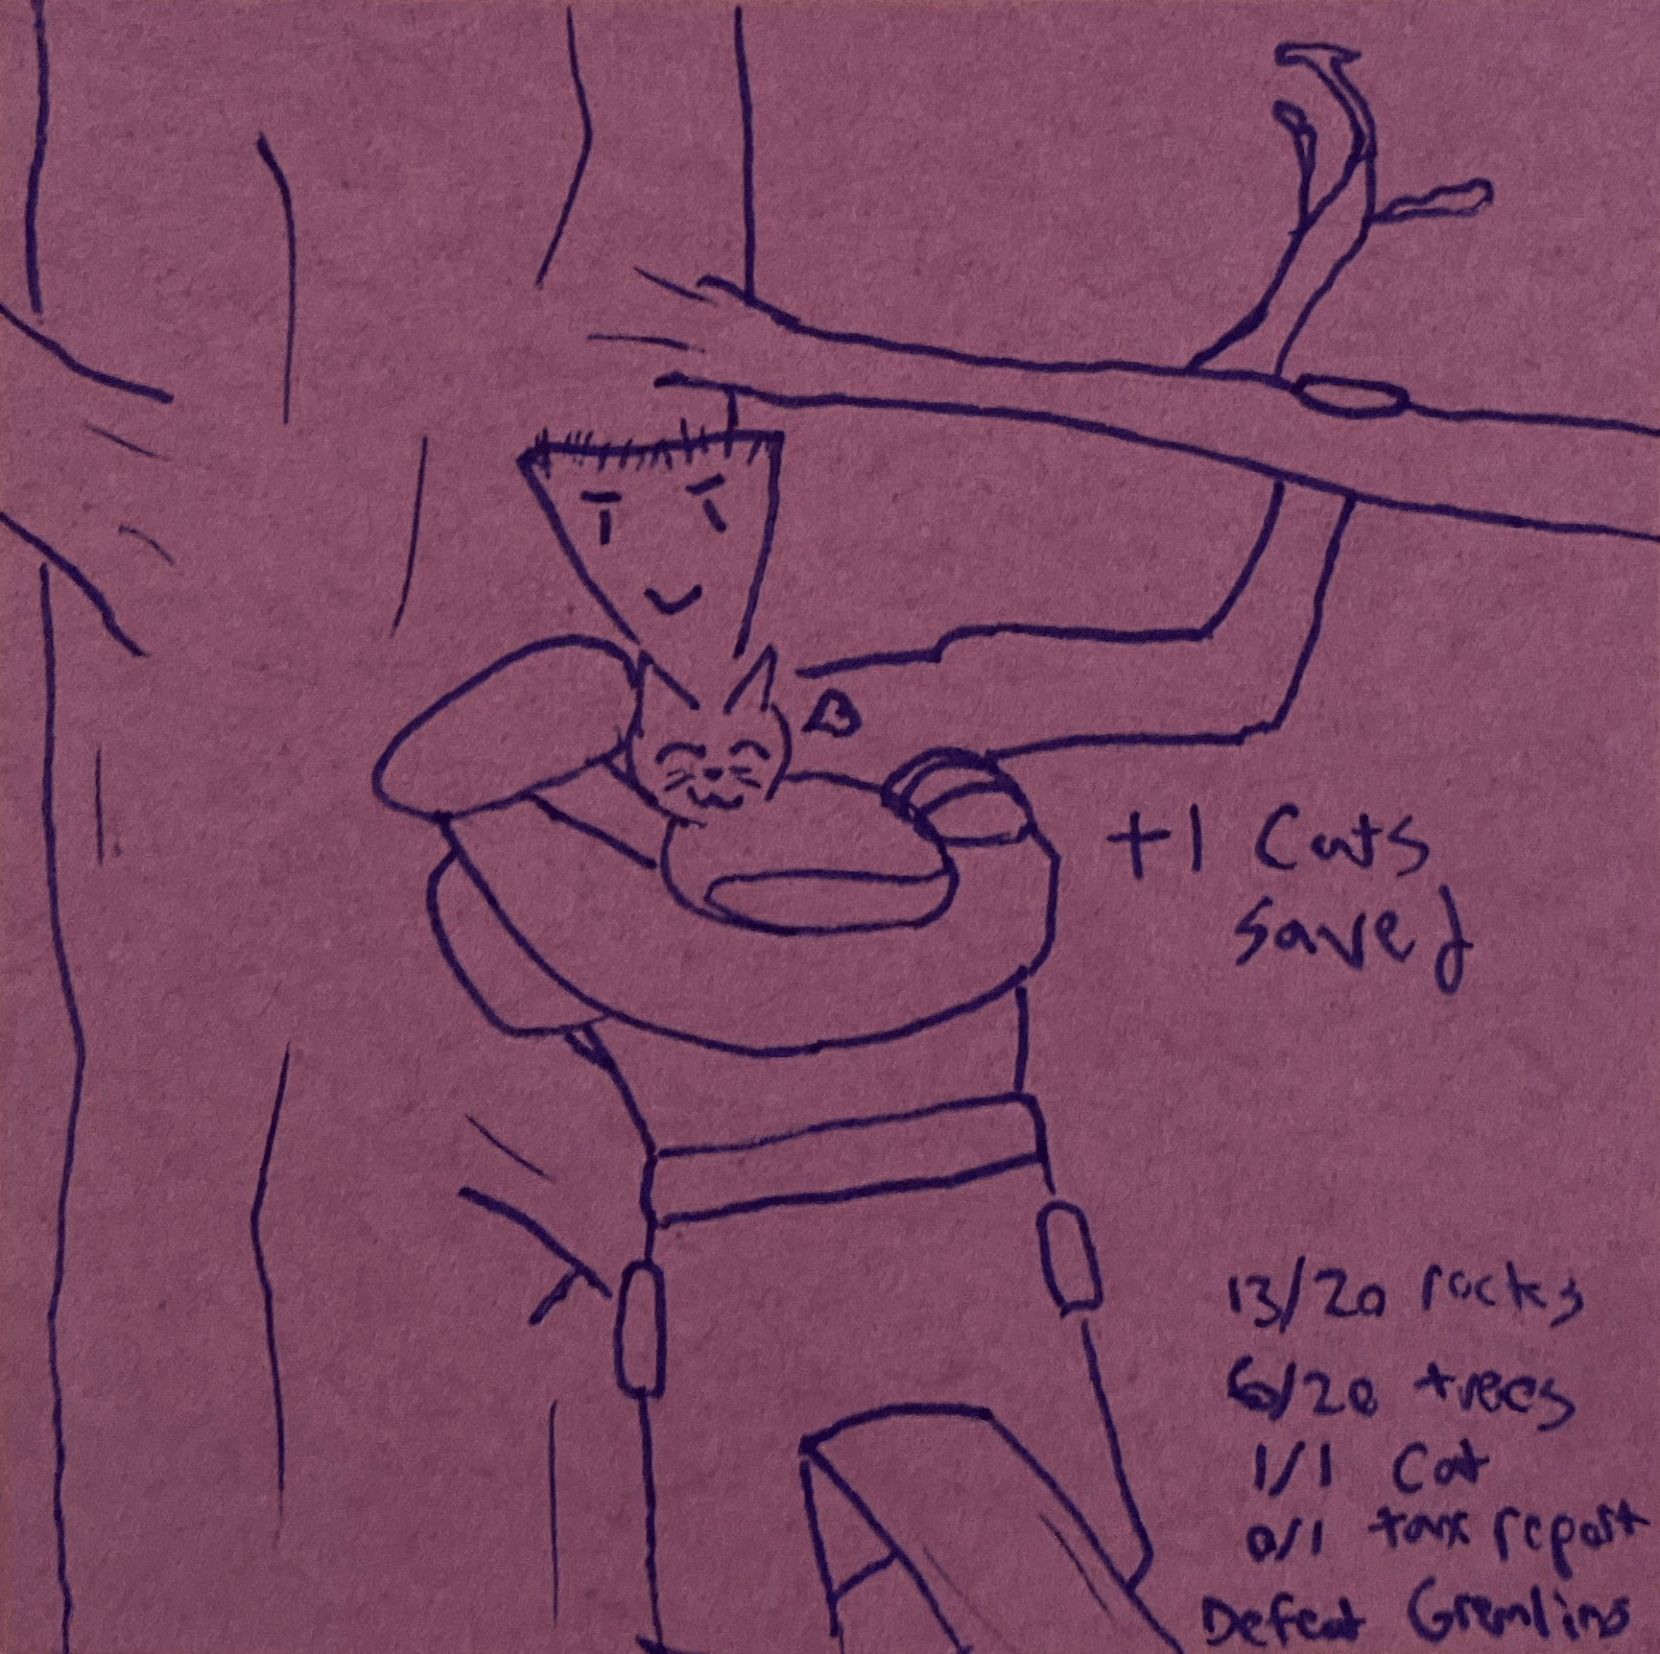 +1 Cats
saved
13/20 rocks
6/20 trees
1/1 Cat
0/1 tax report
Defeat Gremlins